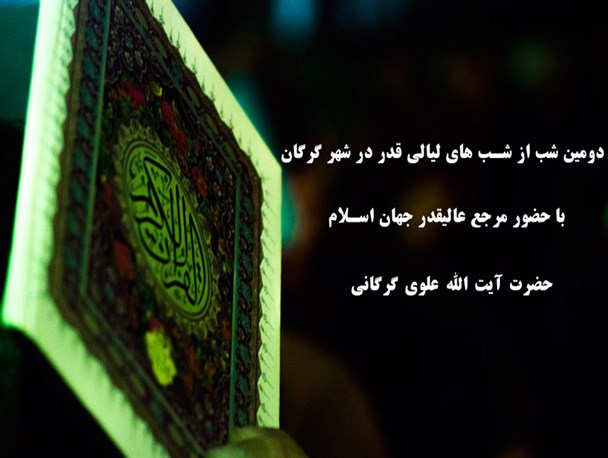 دومین شب از شــب های لیالی قدر در شهر گرگان
با حضور مرجع عالیقدر جهان اســلام
حضرت آیت الله علوی گرگانی
القرآن الكريم